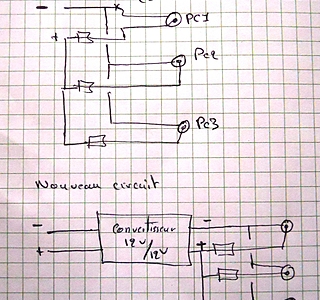 -
PC1
+
PC2
PC3
Nouveau circuit
-
-
Convertisseur
+
+
12V/12V